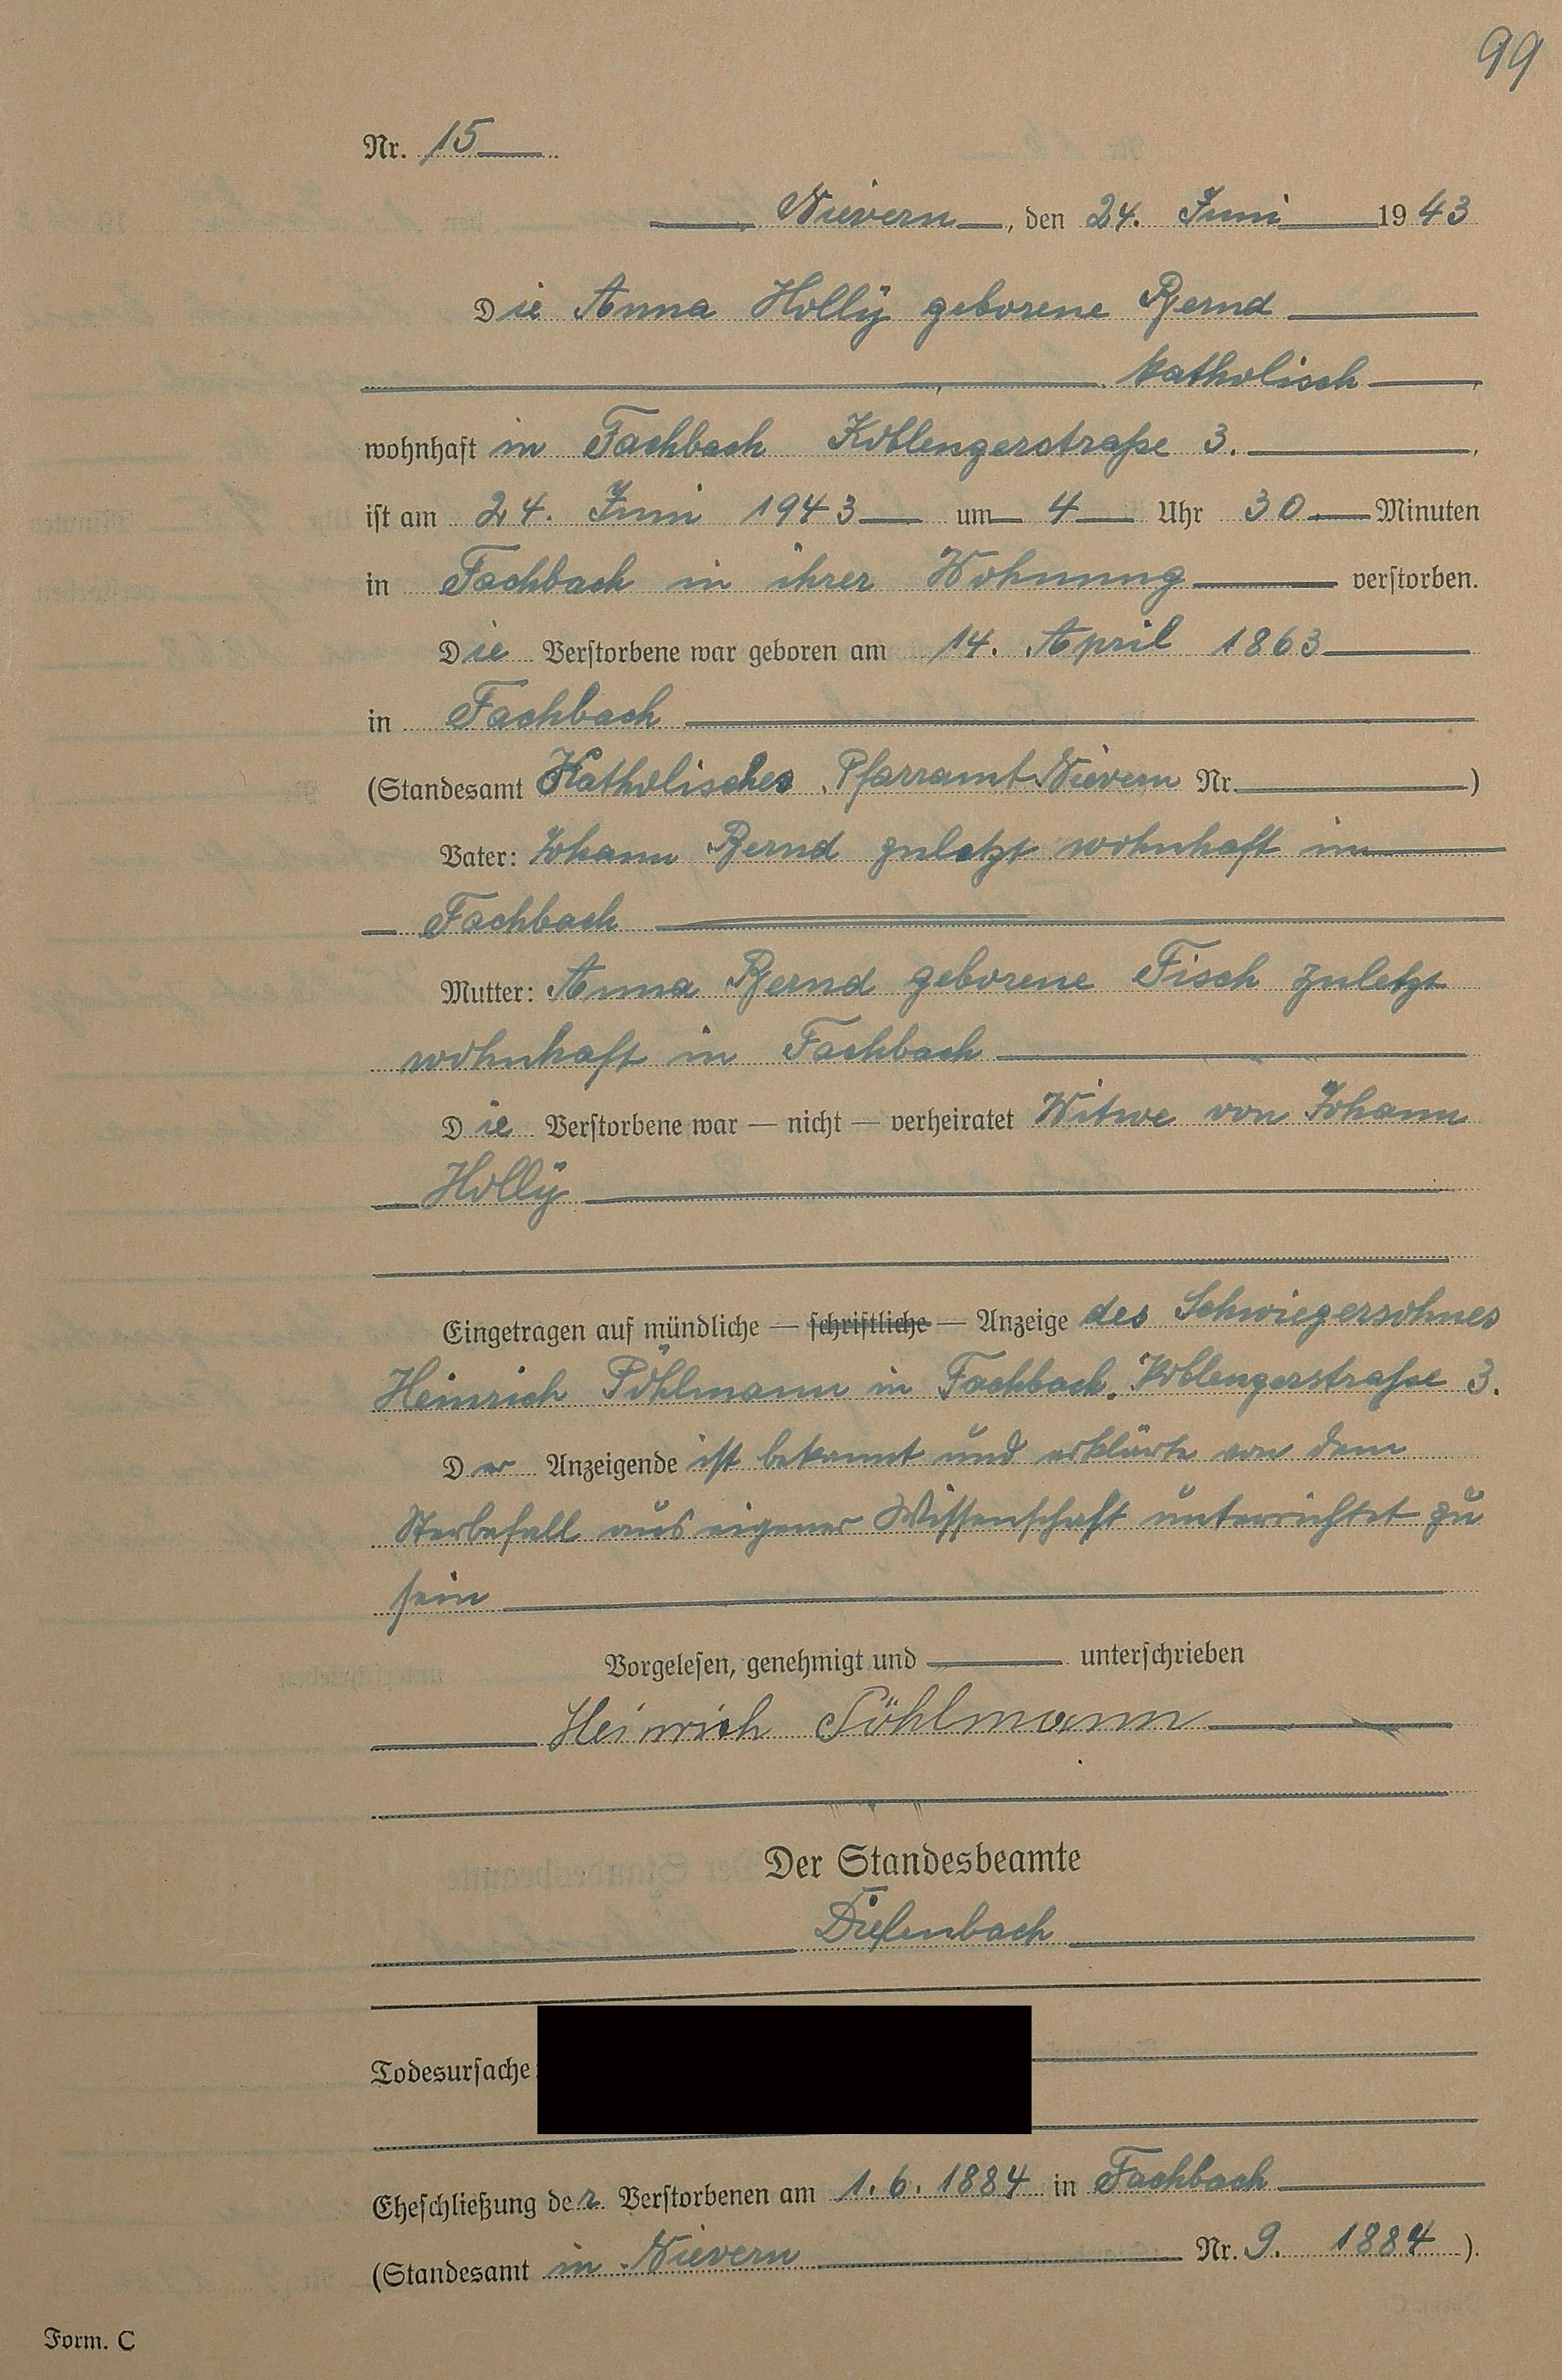 99
Nr. 15
Nievern, den 24. Juni 1943
Die Anna Holly geborene Bernd
katholisch
wohnhaft in Fachbach Koblenzerstraße 3.
ist am 24. Juni 1943 um 4 Uhr 30 Minuten
in Fachbach in ihrer Wohnung verstorben.
Die Verstorbene war geboren am 14. April 1863
in Fachbach
(Standesamt Katholisches Pfarramt Nievern Nr. )
Vater: Johann Bernd zuletzt wohnhaft in
Fachbach
Mutter: Anna Bernd geborene Fisch zuletzt
wohnhaft in Fachbach
Die Verstorbene war — nicht — verheiratet Witwe von Johann
Holly
Eingetragen auf mündliche — schriftliche — Anzeige des Schwiegersohnes
Heinrich Pöhlmann in Fachbach, Koblenzerstraße 3.
Der Anzeigende ist bekannt und erklärte von dem
Sterbefall aus eigener Wissenschaft unterrichtet zu
sein
Vorgelesen, genehmigt und unterschrieben
Heinrich Pöhlmann
Der Standesbeamte
Diefenbach
Todesursache:
Eheschließung der Verstorbenen am 1. 6. 1884 in Fachbach
(Standesamt in Nievern Nr. 9. 1884 ).
Form. C